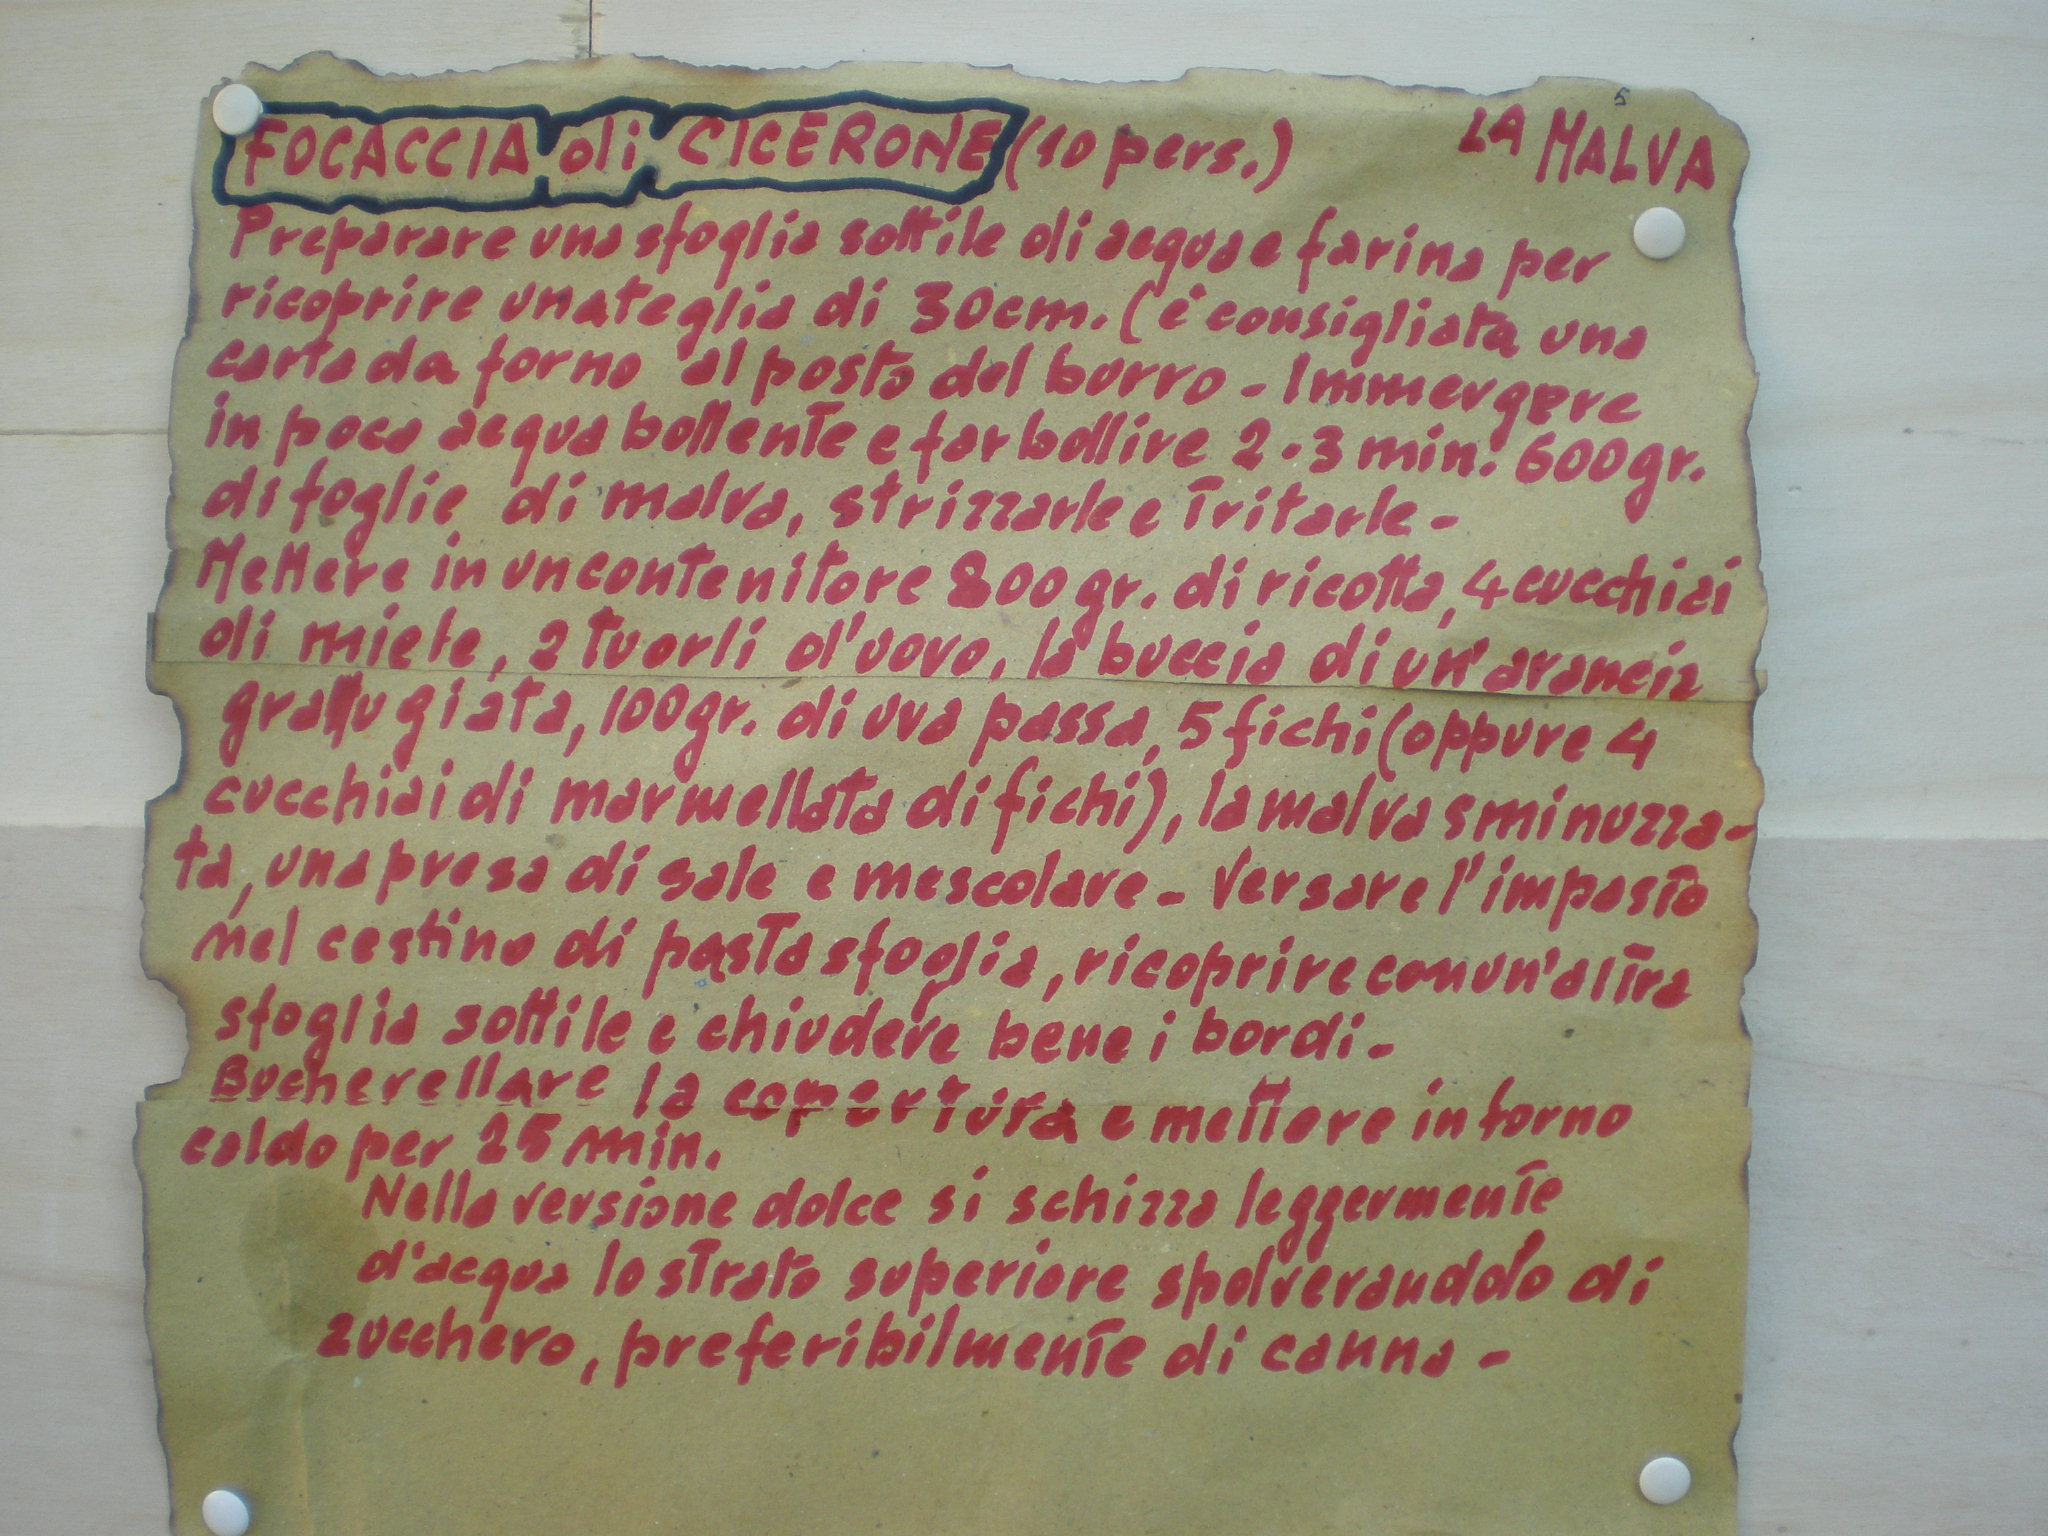 FOCACCIA di CICERONE (10 pers.) LA MALVA
5
Preparare una sfoglia sottile di acqua e farina per
ricoprire una teglia di 30 cm. (è consigliata una
carta da forno al posto del burro - Immergere
in poca acqua bollente e far bollire 2-3 min. 600 gr.
di foglie di malva, strizzarle e tritarle -
Mettere in un contenitore 800 gr. di ricotta, 4 cucchiai
di miele, 2 tuorli d'uovo, la buccia di un'arancia
grattugiata, 100 gr. di uva passa, 5 fichi (oppure 4
cucchiai di marmellata di fichi), la malva sminuzza-
ta, una presa di sale e mescolare - Versare l'impasto
nel cestino di pasta sfoglia, ricoprire con un'altra
sfoglia sottile e chiudere bene i bordi -
Bucherellare la copertura e mettere in forno
caldo per 25 min.
Nella versione dolce si schizza leggermente
d'acqua lo strato superiore spolverandolo di
zucchero, preferibilmente di canna -